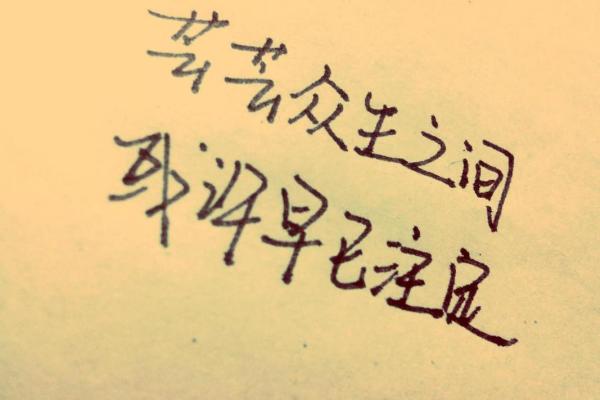 芸芸众生之间
耶许早已注定